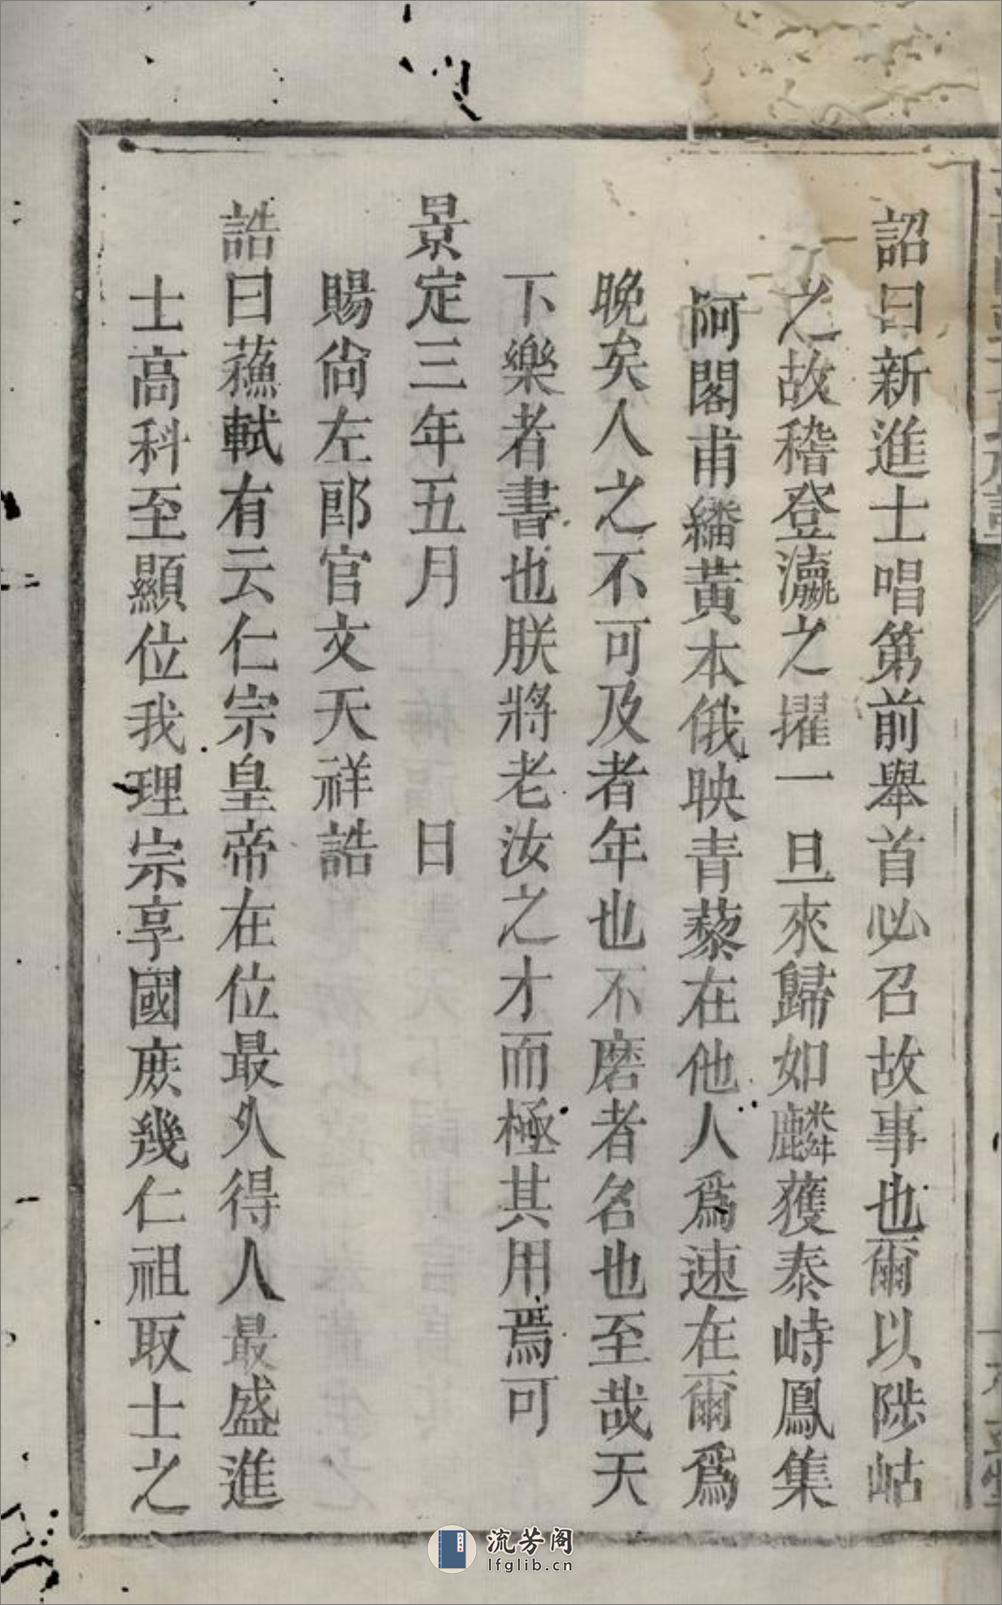 詔曰新進士唱第前舉首必召故事也爾以陟岵
之故稽登瀛之擢一旦來歸如麟獲泰畤鳳集
阿閣甫繙黃本俄映青藜在他人爲速在爾爲
晚矣人之不可及者年也不磨者名也至哉天
下樂者書也朕將老汝之才而極其用焉可
景定三年五月 日
賜尙左郎官文天祥誥
誥曰蘓軾有云仁宗皇帝在位最久得人最盛進
士高科至顯位我理宗享國庻幾仁祖取士之
流芳阁
lfglib.cn